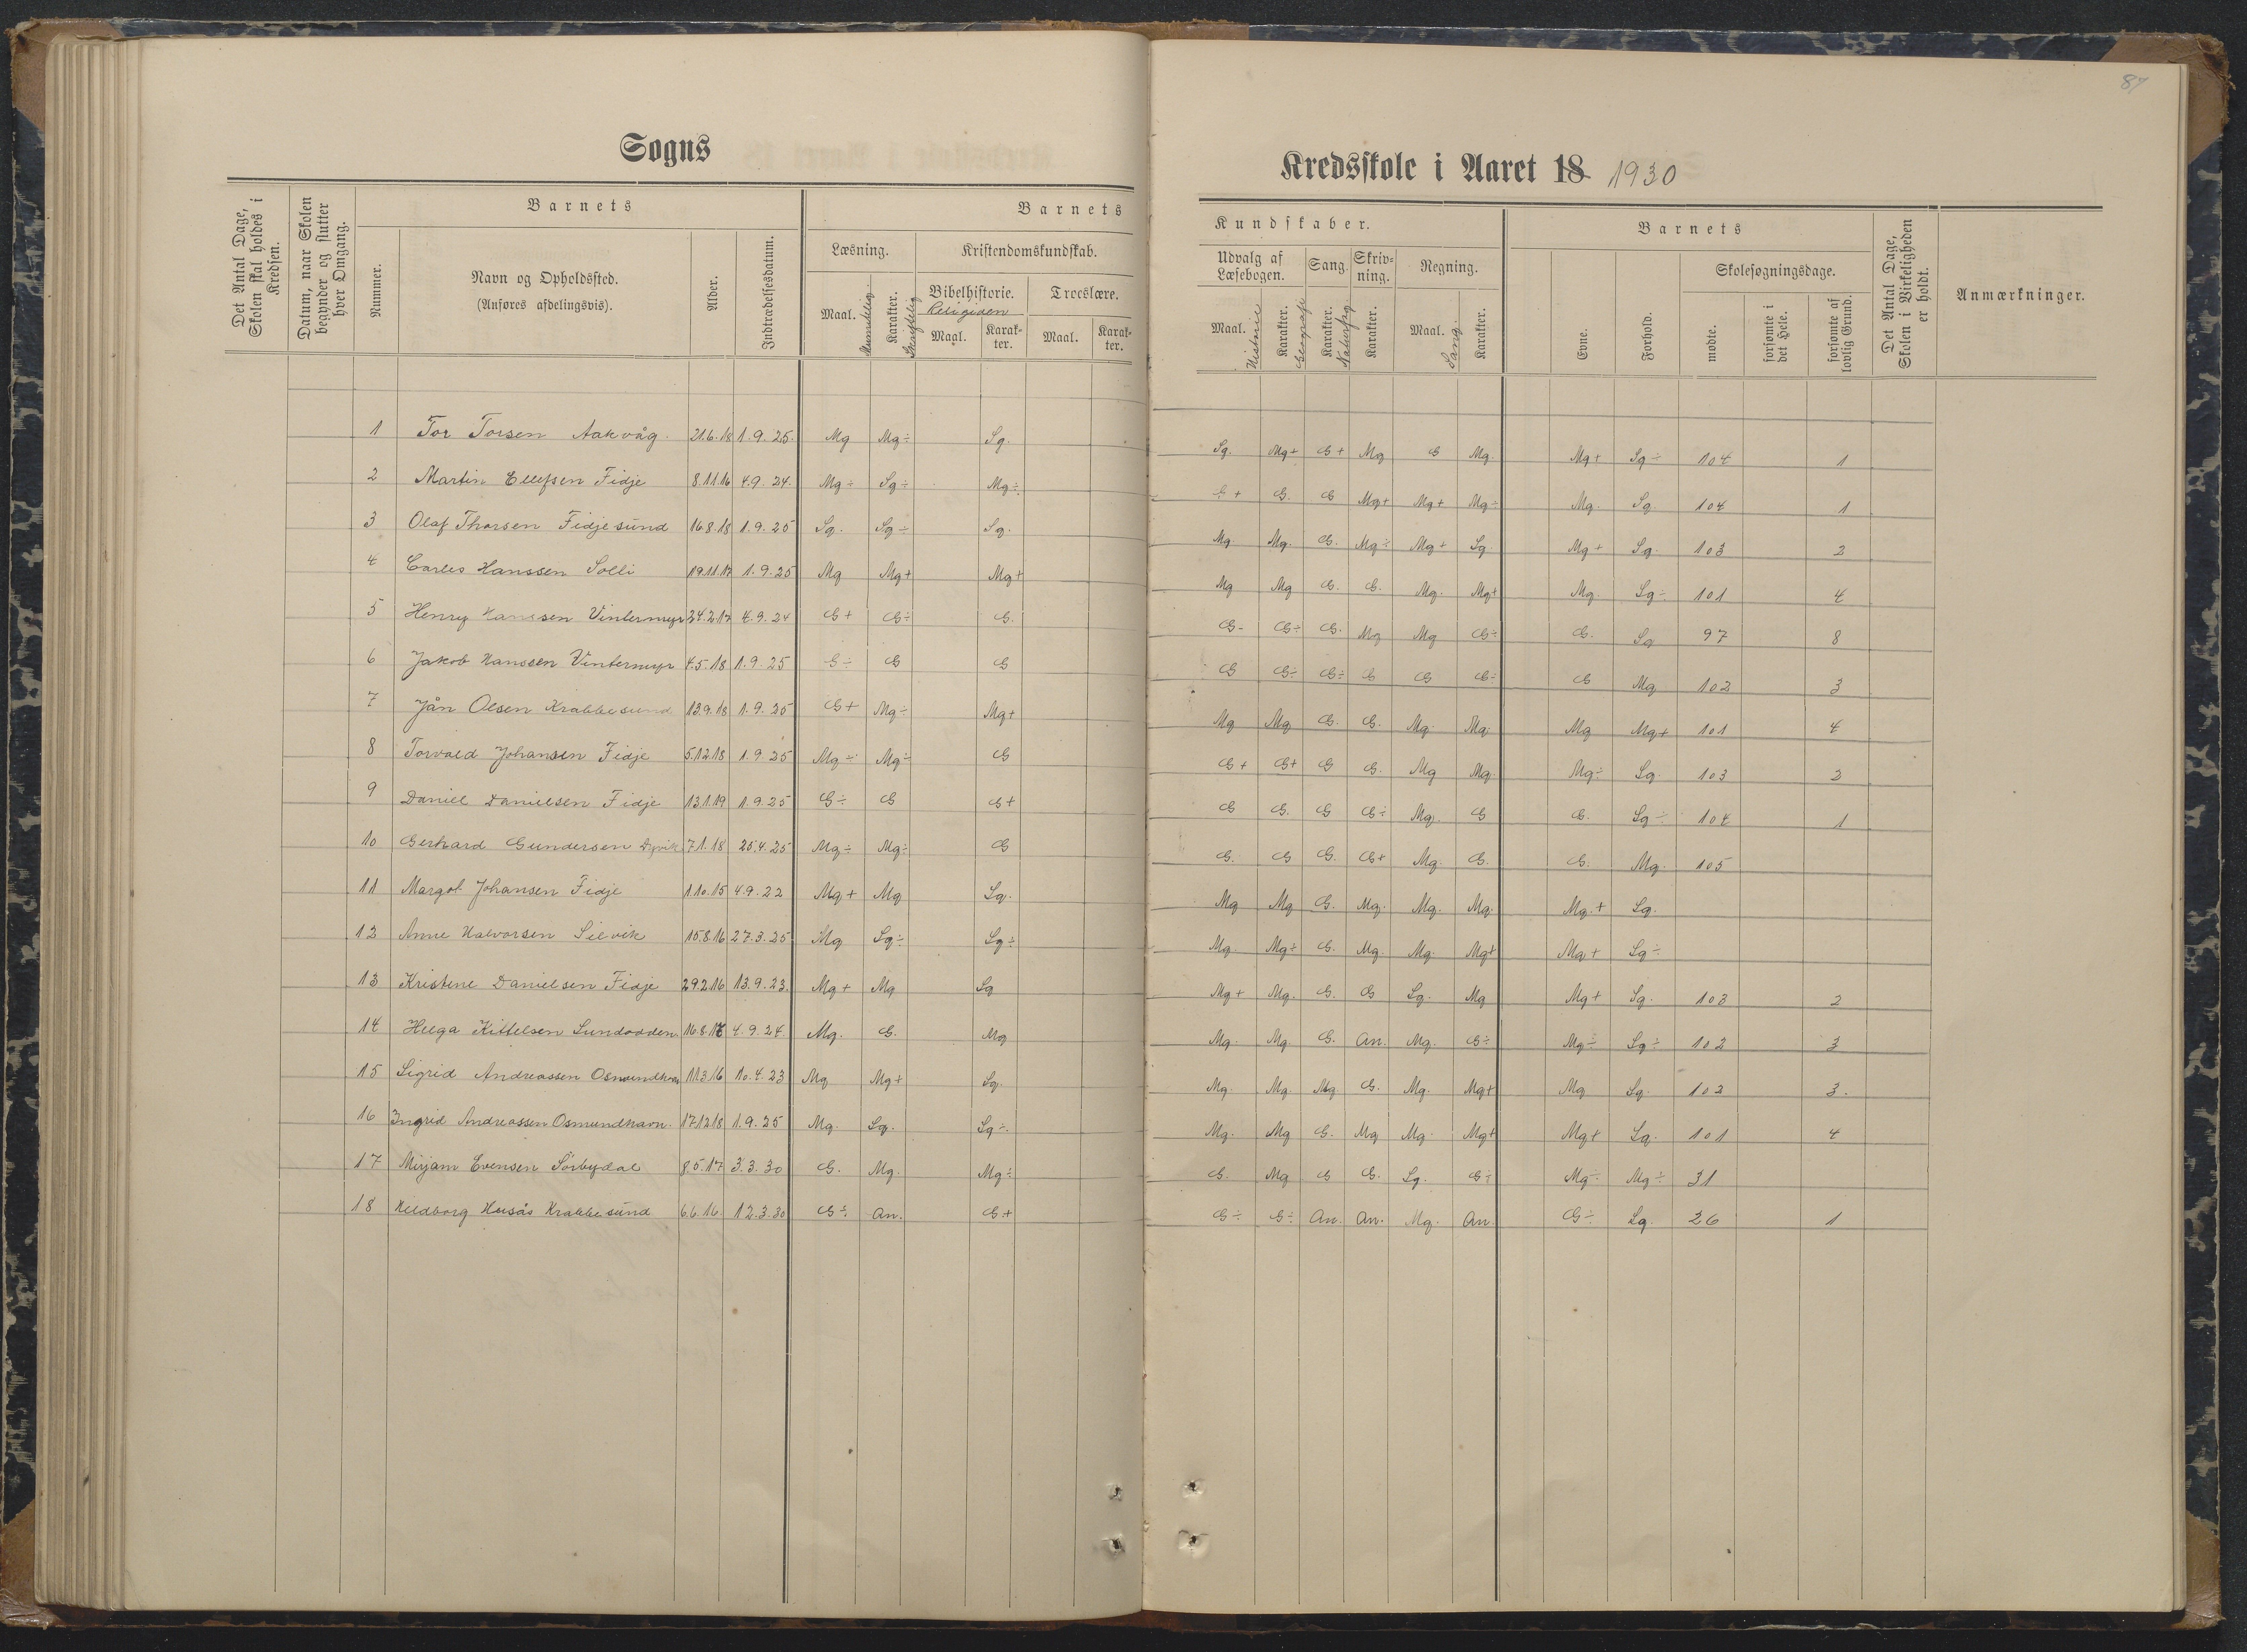 87
Sogns
Kredsskole i Aaret 18 1930
Det Antal Dage, Skolen skal holdes i Kredsen.
Datum, naar Skolen begynder og slutter hver Omgang.
Barnets
Nummer.
Navn og Opholdssted.
(Anføres afdelingsvis).
Alder.
Indtrædelsesdatum.
Barnets
Læsning.
Maal. Mundtlig.
Karakter. Skriftlig
Kristendomskundskab.
Bibelhistorie.
Religion
Maal.
Karakter.
Troeslære.
Maal.
Karakter.
Kundskaber.
Udvalg af Læsebogen.
Maal. Historie
Karakter. Geografi
Sang.
Karakter. Naturfag
Skrivning.
Karakter.
Regning.
Maal. Sang.
Karakter.
Barnets
Evne.
Forhold.
Skolesøgningsdage.
mødte.
forsømte i det Hele.
forsømte af lovlig Grund.
Det Antal Dage, Skolen i Virkeligheden er holdt.
Anmærkninger.
1 Tor Torsen Aakvåg. 21.6.18 1.9.25. Mg Mg÷ Sg. Sg. Mg+ G+ Mg G Mg. Mg+ Sg÷ 104 1
2 Martin Ellefsen Fidje 8.11.16 4.9.24. Mg÷ Sg÷ Mg÷ G+ G. G Mg+ Mg+ Mg÷ Mg. Sg. 104 1
3 Olaf Thorsen Fidjesund 16.8.18 1.9.25 Sg. Sg÷ Sg. Mg. Mg. G. Mg÷ Mg+ Sg. Mg+ Sg. 103 2
4 Carles Hanssen Solli 19.11.17 1.9.25 Mg Mg+ Mg+ Mg Mg G. G. Mg. Mg+ Mg. Sg÷ 101 4
5 Henry Hanssen Vintermyr 24.2.17 4.9.24 G+ G÷ G. G- G÷ G. Mg Mg G÷ G. Sg 97 8
6 Jakob Hanssen Vintermyr 4.5.18 1.9.25 G÷ G G G G÷ G÷ G G G÷ G Mg 102 3
7 Jån Olsen Krabbesund 13.9.18 1.9.25 G+ Mg÷ Mg+ Mg Mg G. G. Mg. Mg. Mg Mg+ 101 4
8 Torvald Johansen Fidje 5.12.18 1.9.25 Mg÷ Mg÷ G G+ G+ G G. Mg Mg. Mg÷ Sg. 103 2
9 Daniel Danielsen Fidje 13.1.19 1.9.25 G÷ G G+ G G. G G÷ Mg. G G. Sg÷ 104 1
10 Gerhard Gundersen Dyvik 7.1.18 25.4.25 Mg÷ Mg÷ G G. G G. G+ Mg. G. G. Mg. 105
11 Margot Johansen Fidje 1.10.15 4.9.22 Mg+ Mg Sg. Mg Mg G. Mg. Mg. Mg. Mg.+ Sg.
12 Anne Halvorsen Silvik 15.8.16 27.3.25 Mg Sg÷ Sg÷ Mg. Mg÷ G. Mg. Mg. Mg+ Mg+ Sg÷
13 Kristine Danielsen Fidje 29.2.16 13.9.23. Mg+ Mg Sg Mg+ Mg. G. G Sg. Mg Mg+ Sg. 103 2
14 Helga Kittelsen Sundodden 4.9.24. Mg. G. Mg Mg. Mg. G. An. Mg. G÷ Mg÷ Sg÷ 102 3
15 Sigrid Andreassen Osmundhavn 11.3.16 10.4.23 Mg Mg+ Sg. Mg. Mg. Mg G. Mg. Mg+ Mg Sg. 102 3.
16 Ingrid Andreassen Osmundhavn. 17.12.18 1.9.25 Mg. Sg. Sg÷. Mg. Mg G. Mg Mg. Mg+ Mg+ Sg. 101 4
17 Mirjam Evensen Sörbydal 8.5.17 3.3.30 G. Mg. Mg÷ G. Mg G G. Sg. G÷ Mg÷ Mg÷ 31
18 Husås Krabbesund 6.6.16. 12.3.30 G÷ An. G+ G÷ G÷ An. An. Mg. An. G÷ Sg. 26 1